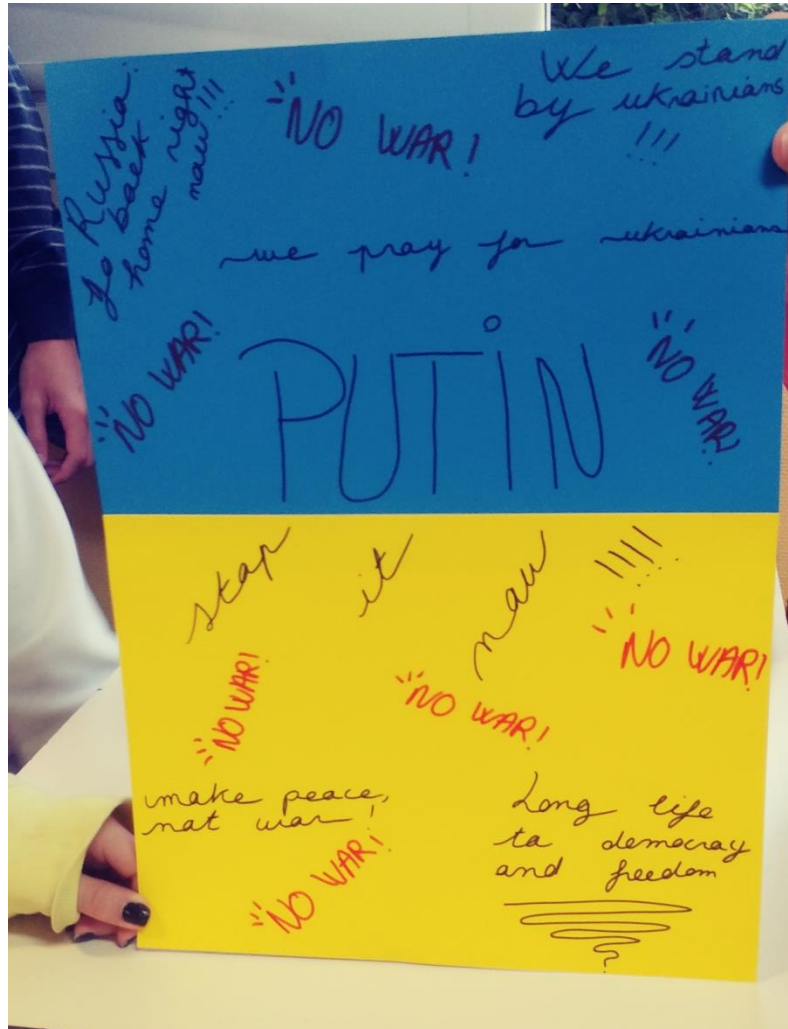 Russia.
go back
home right
now!!!
NO WAR!
We stand
by ukrainians
!!!
we pray for ukrainians
NO WAR!
NO WAR!
PUTIN
stop it now !!!!
NO WAR!
NO WAR!
NO WAR!
make peace,
not war!
NO WAR!
Long life
to democray
and freedom